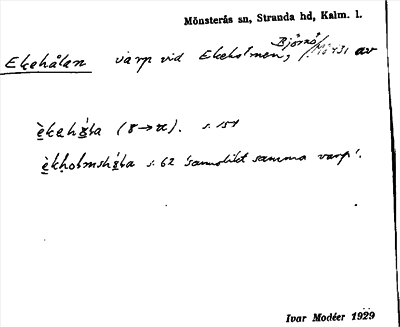 Mönsterås sn, Stranda hd, Kalm. l.
Ekehålan varp vid Ekeholmen, Björnö av
èkehála (8→π). s. 154
èkholmshála s. 62 'sannolikt samma varp'.
Ivar Modéer 1929